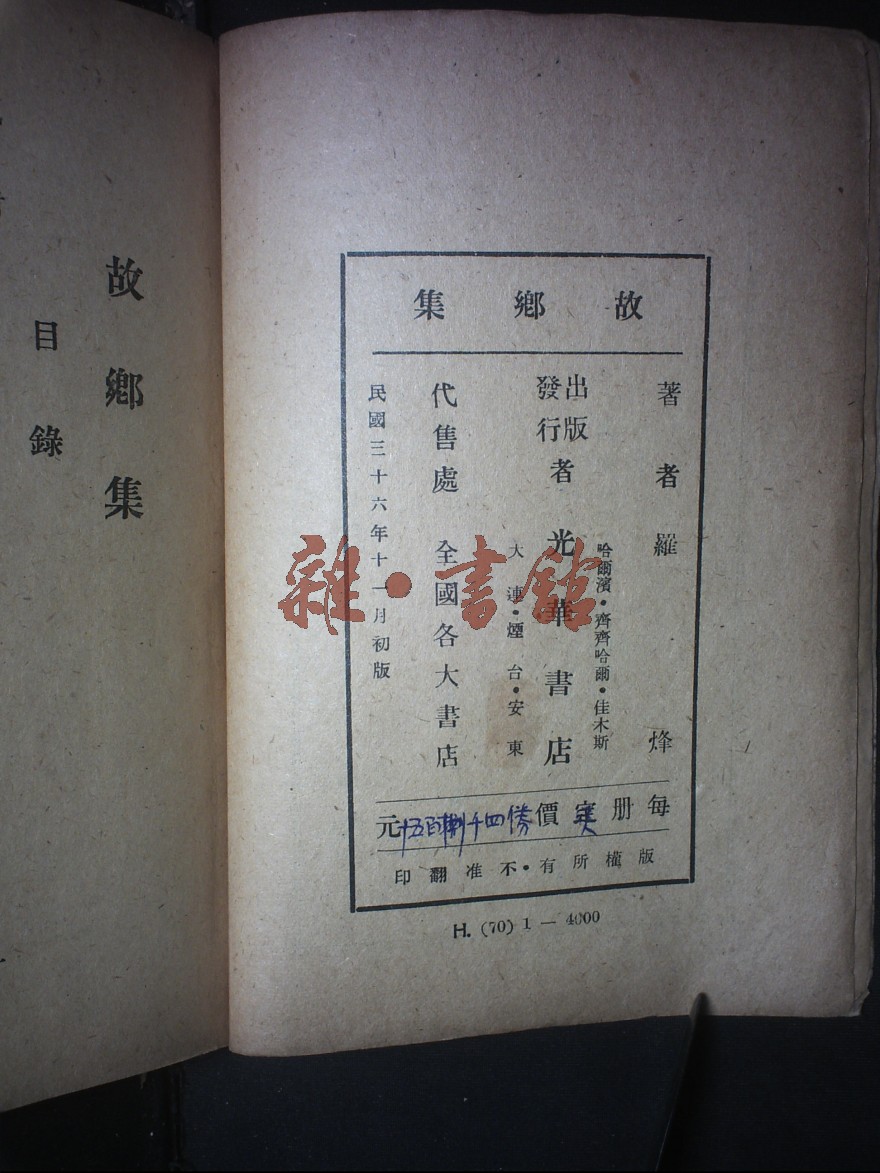 故鄉集
著者 羅烽
出版
發行
者 光華書店
哈爾濱・齊齊哈爾・佳木斯
大連・煙台・安東
代售處 全國各大書店
民國三十六年十一月初版
每册實價 四千 五百 十元
版權所有・不准翻印
H. (70) 1 — 4000
故鄉集
目錄
雜・書館